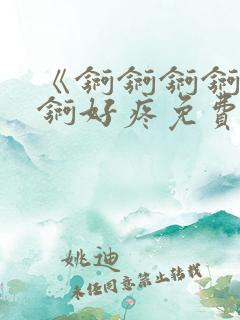 《锕锕锕锕
锕好疼免費
姚迪
未任同意禁止转载